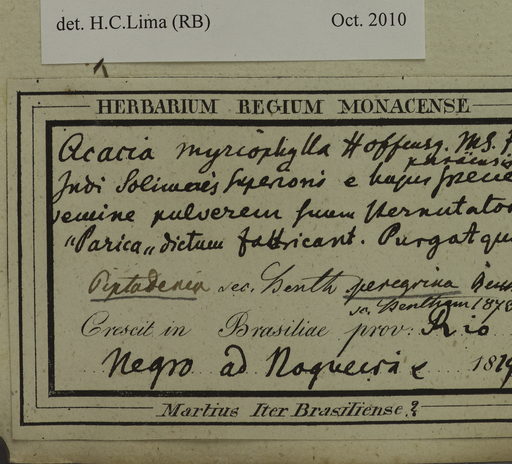 det. H.C.Lima (RB) Oct. 2010
HERBARIUM REGIUM MONACENSE
Acacia myriophylla Hoffmsg. MS.
Indi Solimoës Superioris e hujus
semine pulverem suum sternutator
"Parica„ dictum fabricant. Purgat qu
Piptadenia sec. Benth peregrina Benth
sc. Bentham 1875
Crescit in Brasiliae prov: Rio
Negro ad Nogueira 1819
Martius Iter Brasiliense.